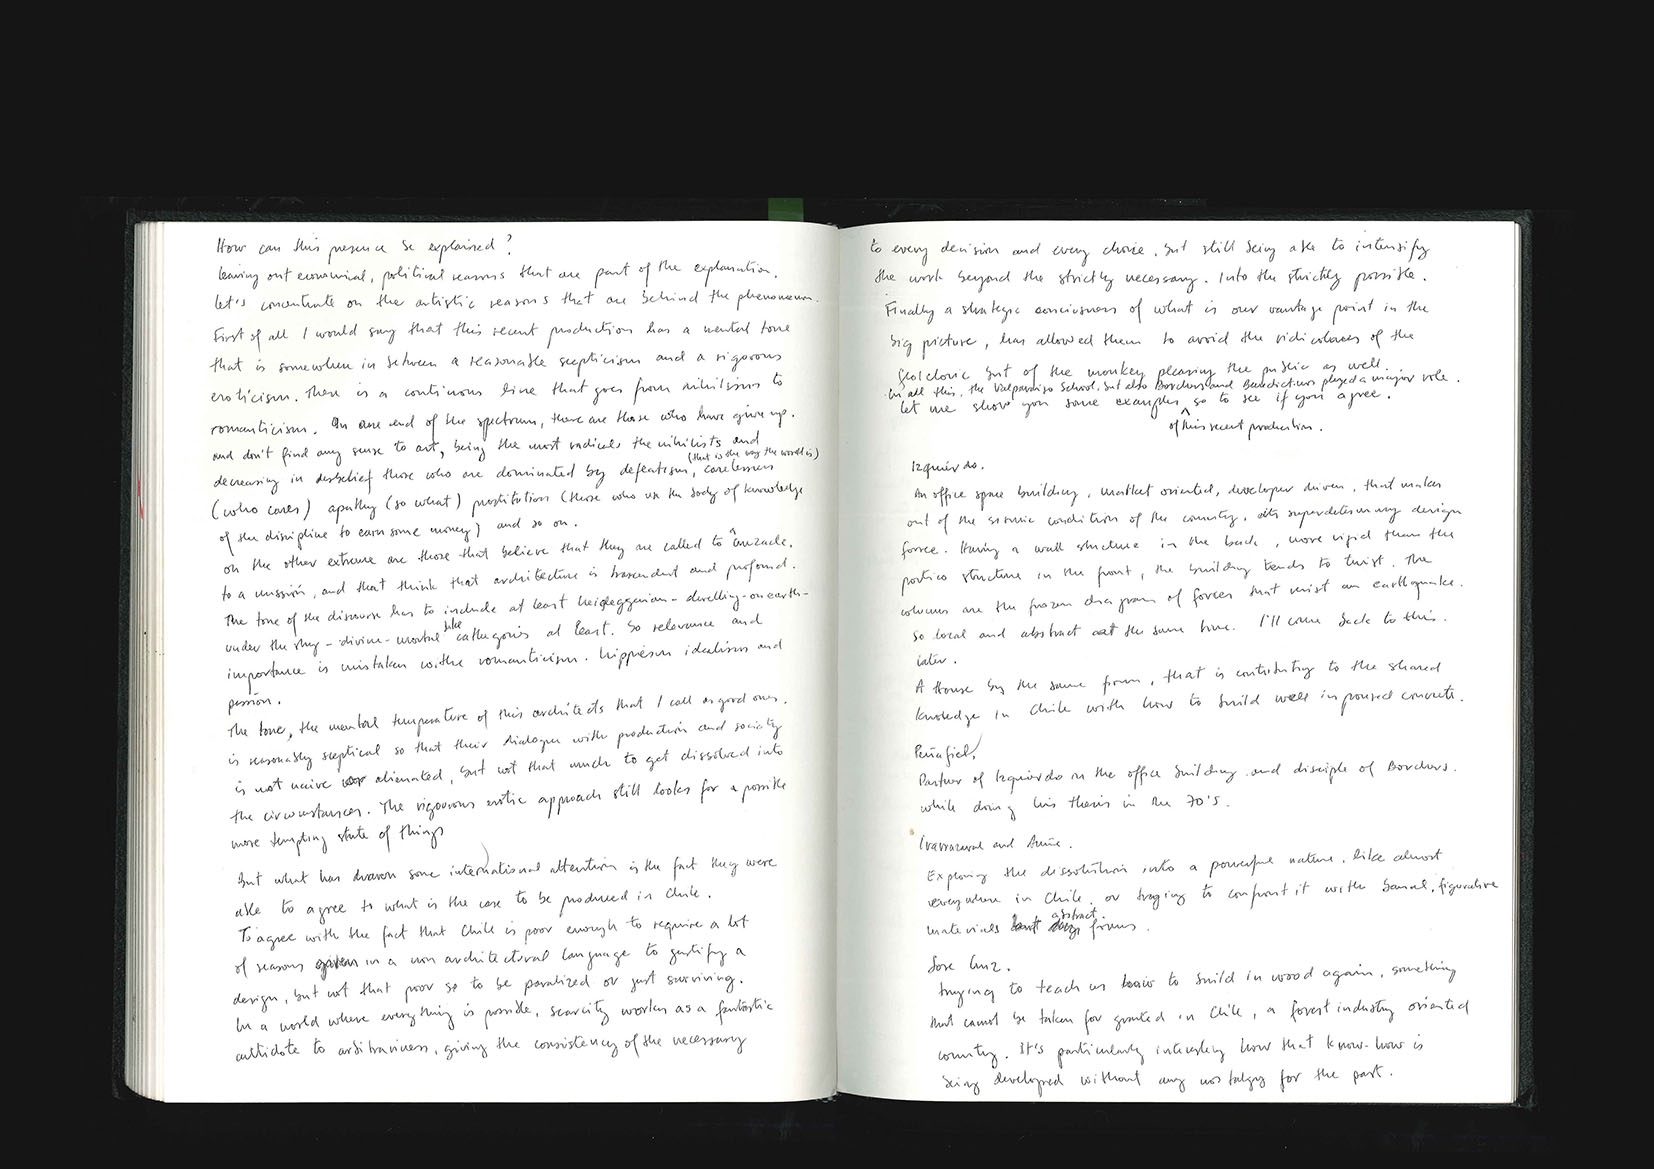 How can this presence be explained?
Leaving out economical, political reasons that are part of the explanation,
let's concentrate on the artistic reasons that are behind the phenomenon.
First of all I would say that this recent production has a mental tone
that is somewhere in between a reasonable scepticism and a rigorous
eroticism. There is a continous line that goes from nihilisms to
romanticism. On one end of the spectrum, there are those who have given up.
and don't find any sense to art, being the most radicals the nihilists and
decreasing in desbelief those who are dominated by defeatism, (that is the way the world is) carelessness
(who cares) apathy (so what) prostitution (those who use the body of knowledge
of the discipline to earn some money) and so on.
on the other extreme are those that believe that they are called to
to a mission, and that think that architecture is trascendent and profound.
The tone of the discourse has to include at least heideggerian-dwelling-on earth-
under the sky-divine-mortal like cathegories at least. So relevance and
importance is mistaken with romanticism. hippiesm idealism and
passion.
The tone, the mental temperature of this architects that I call as good ones,
is reasonably skeptical so that their dialogue with production and society
is not naive or alienated, but not that much to get dissolved into
the circumstances. The rigourous erotic approach still looks for a possible
more tempting state of things
But what has drawn some international attention is the fact they were
able to agree to what is the case to be produced in Chile.
To agree with the fact that Chile is poor enough to require a lot
of reasons given in a non architectural language to justify a
design, but not that poor so to be paralized or just surviving.
In a world where everything is possible, scarcity works as a fantastic
antidote to arbitrariness, giving the consistency of the necessary
to every decision and every choice, but still being able to intensify
the work beyond the strictly necessary. Into the strictly possible.
Finally a strategic consciusness of what is our vantage point in the
big picture, has allowed them to avoid the ridiculness of the
but of the monkey pleasing the public as well.
In all this, the Valparaiso School, but also Borchers and Benedictines played a major role.
let me show you some examples, so to see if you agree.
of this recent production.
Izquierdo.
An office space building, market oriented, developer driven, that makes
out of the seismic condition of the country, its superdetermining design
force. Having a wall structure in the back, more rigid than the
portico structure in the front, the building tends to twist. The
columns are the frozen diagram of forces that resist an earthquake.
so local and abstract at the same time. I'll come back to this.
later.
A House by the same firm, that is contributing to the shared
knoledge in Chile with how to build well in poured concrete.
Peñafiel,
Partner of Izquierdo in the office building and disciple of Borchers.
while doing his thesis in the 70's.
Irarrazaval and
Exploring the dissolution into a powerful nature, like almost
everywhere in Chile, or trying to confront it with banal, figurative
materials abstract forms.
Jose Cruz.
trying to teach us how to build in wood again, something
that cannot be taken for granted in Chile, a forest industry oriented
country. It's particularly interesting how that know-how is
being developed without any nostalgy for the past.